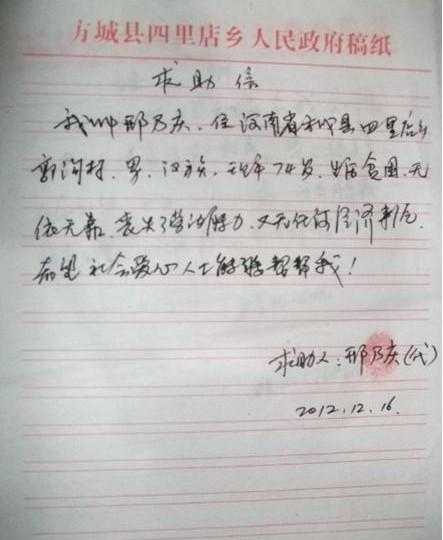 方城县四里店乡人民政府稿纸
求助信
我叫邢乃庆，住河南省方城县四里店乡
郭沟村，男，汉族，现年74岁，生活贫困，无
依无靠，丧失了劳动能力，又无任何经济来源，
希望社会爱心人士能够帮帮我！
求助人：邢乃庆(代)
2012.12.16.